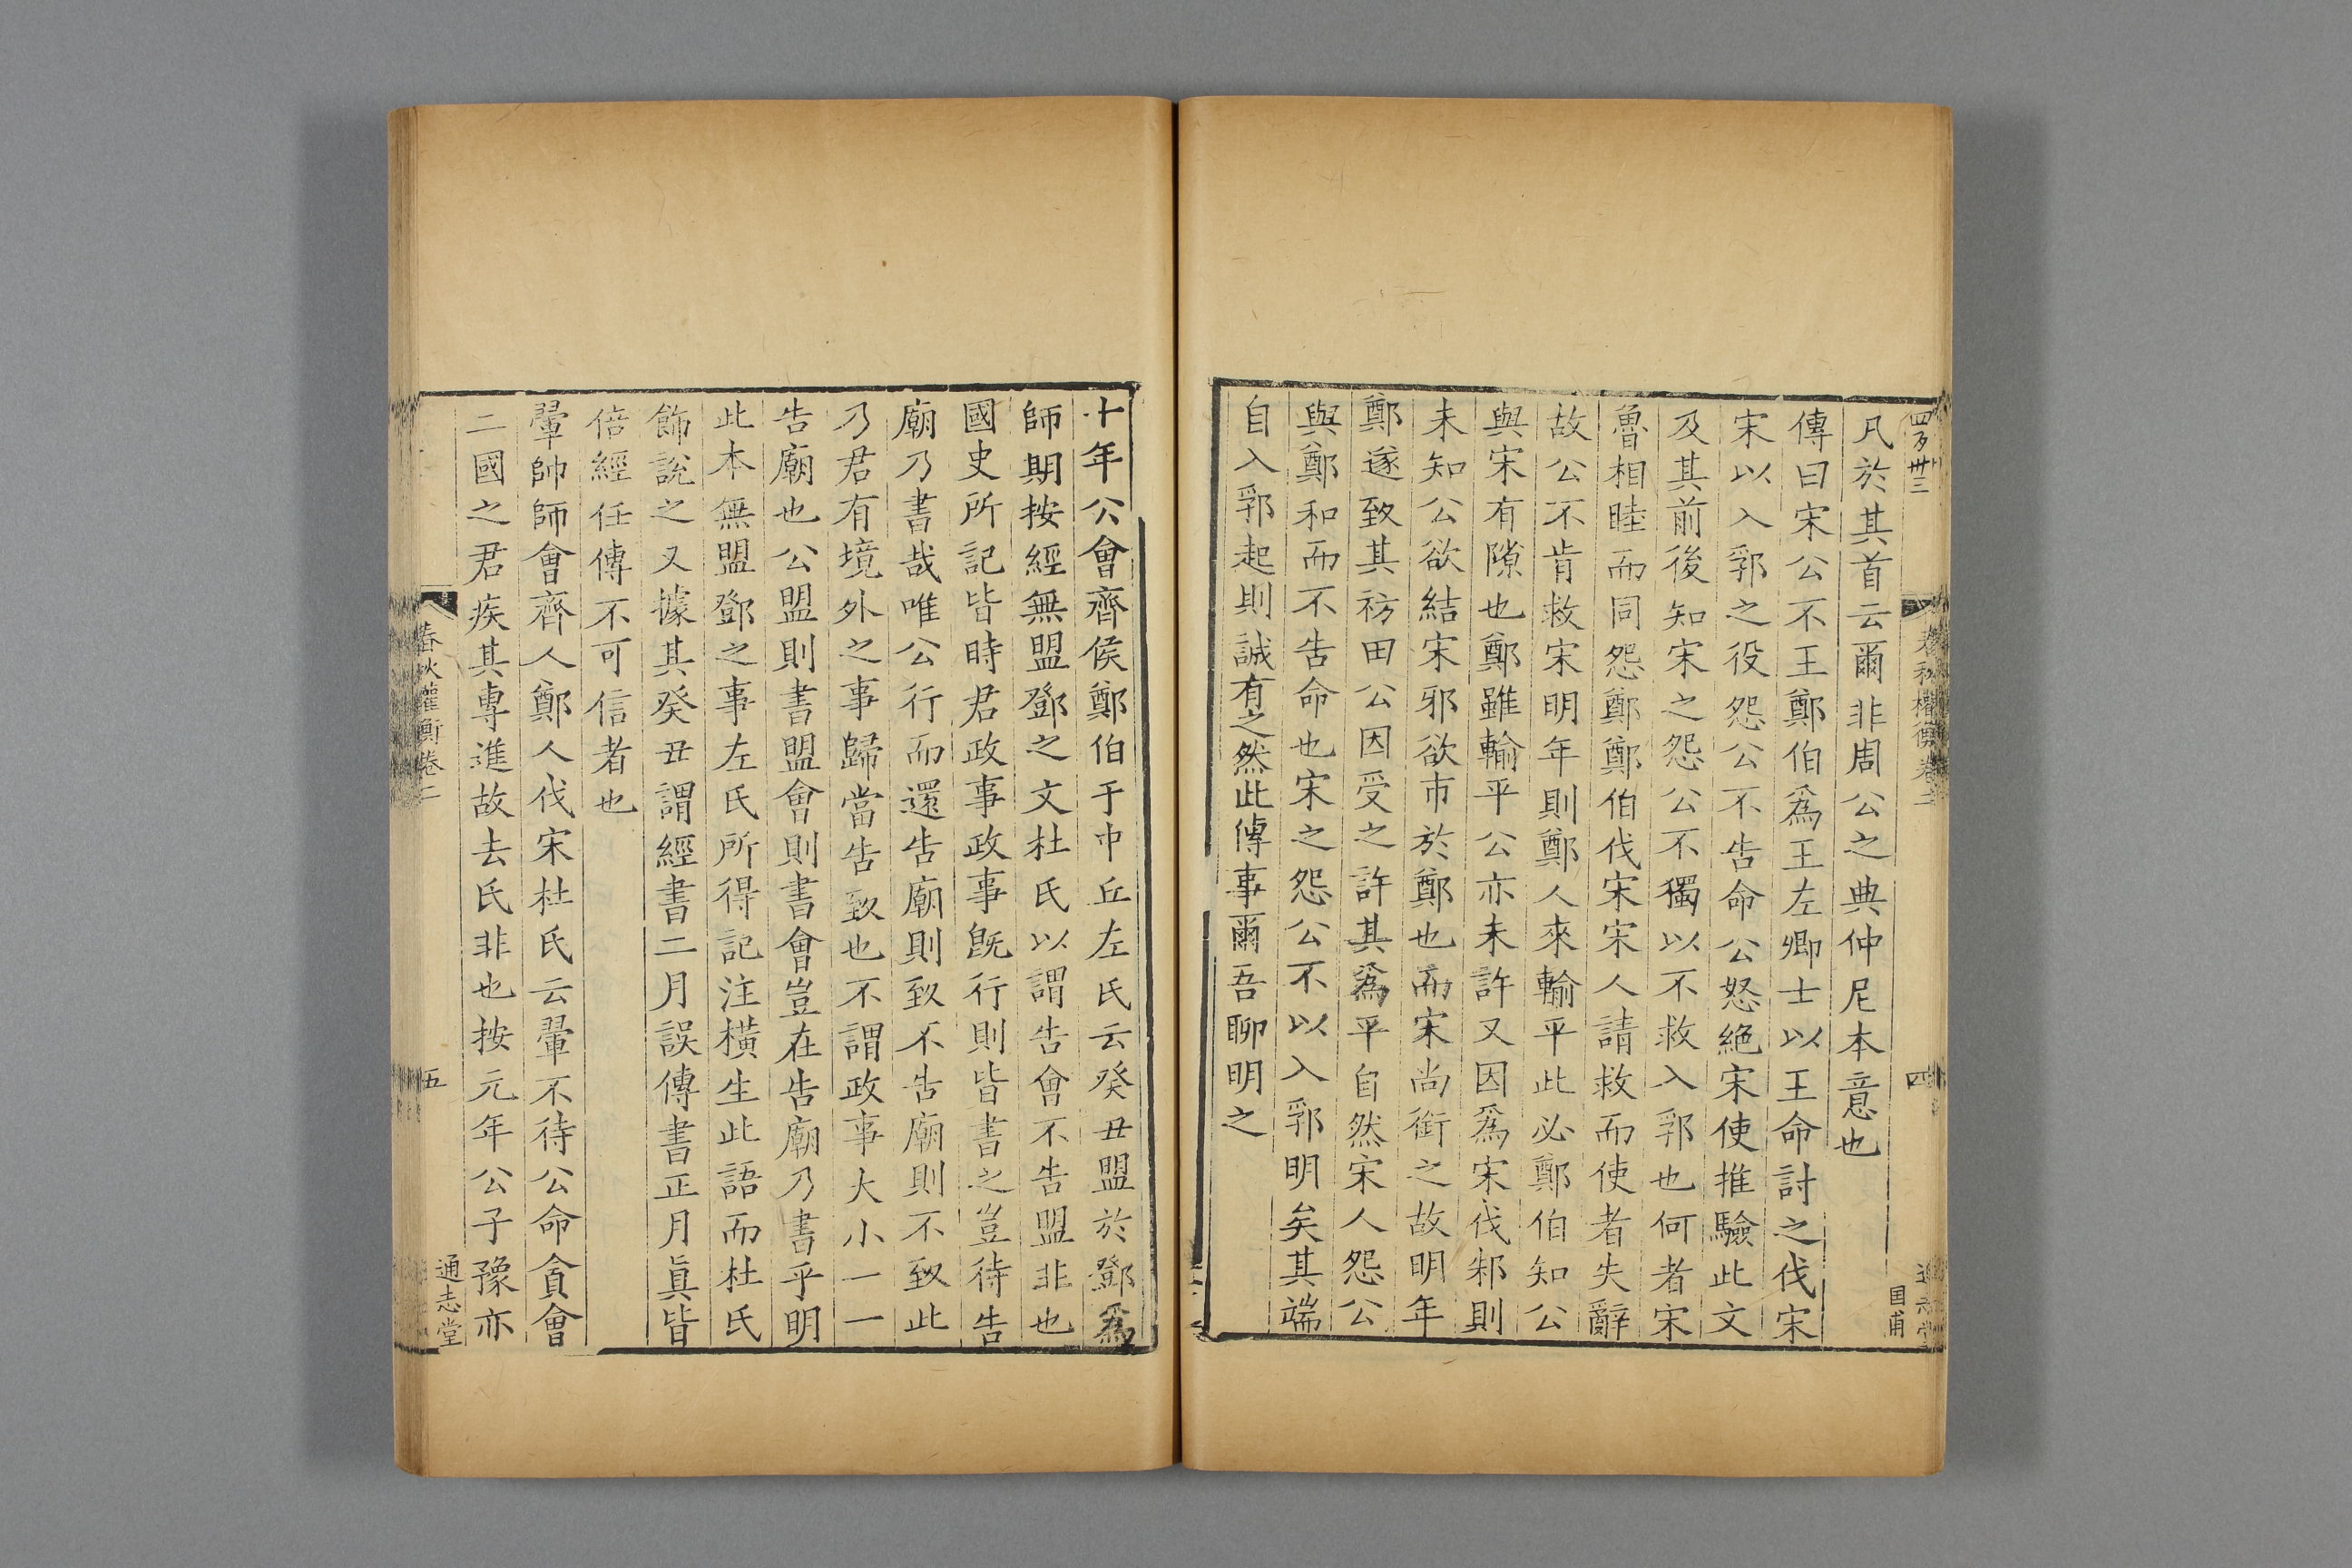 凡於其首云爾非周公之典仲尼本意也
傳曰宋公不王鄭伯爲王左卿士以王命討之伐宋
宋以入郛之役怨公不告命公怒絶宋使推驗此文
及其前後知宋之怨公不獨以不救入郛也何者宋
魯相睦而同怨鄭鄭伯伐宋宋人請救而使者失辭
故公不肯救宋明年則鄭人來輸平此必鄭伯知公
與宋有隙也鄭雖輸平公亦未許又因爲宋伐邾則
未知公欲結宋邪欲市於鄭也而宋尚銜之故明年
鄭遂致其祊田公因受之許其爲平自然宋人怨公
與鄭和而不告命也宋之怨公不以入郛明矣其端
自入郛起則誠有之然此傳事爾吾聊明之
春秋權衡卷二
四
国甫
十年公會齊侯鄭伯于中丘左氏云癸丑盟於鄧爲
師期按經無盟鄧之文杜氏以謂告會不告盟非也
國史所記皆時君政事政事旣行則皆書之豈待告
廟乃書哉唯公行而還告廟則致不告廟則不致此
乃君有境外之事歸當告致也不謂政事大小一一
告廟也公盟則書盟會則書會豈在告廟乃書乎明
此本無盟鄧之事左氏所得記注橫生此語而杜氏
飾說之又據其癸丑謂經書二月誤傳書正月眞皆
倍經任傳不可信者也
翬帥師會齊人鄭人伐宋杜氏云翬不待公命貪會
二國之君疾其專進故去氏非也按元年公子豫亦
春秋權衡卷二
五
通志堂